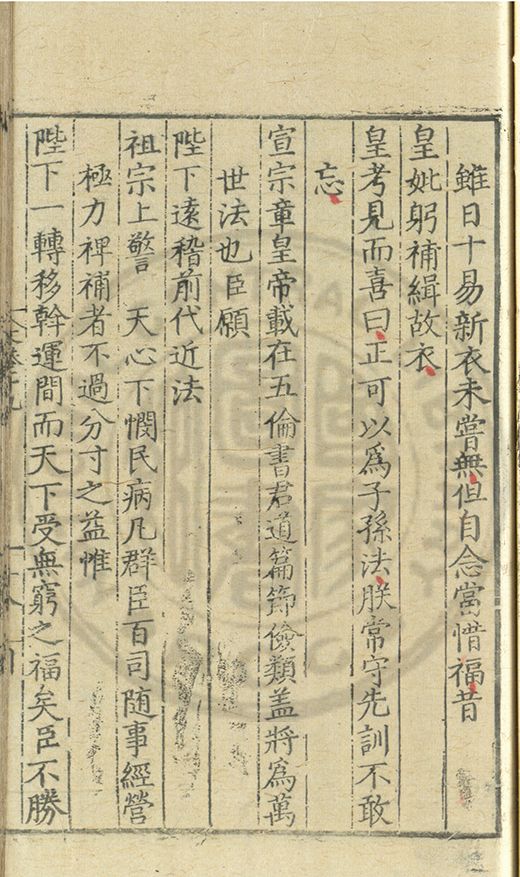 雖日十易新衣未嘗無但自念當惜福昔
皇妣躬補緝故衣
皇考見而喜曰正可以爲子孫法朕常守先訓不敢
忘
宣宗章皇帝載在五倫書君道篇節儉類盖將爲萬
世法也臣願
陛下遠稽前代近法
祖宗上警 天心下憫民病凡群臣百司随事經營
極力裨補者不過分寸之益惟
陛下一轉移幹運間而天下受無窮之福矣臣不勝